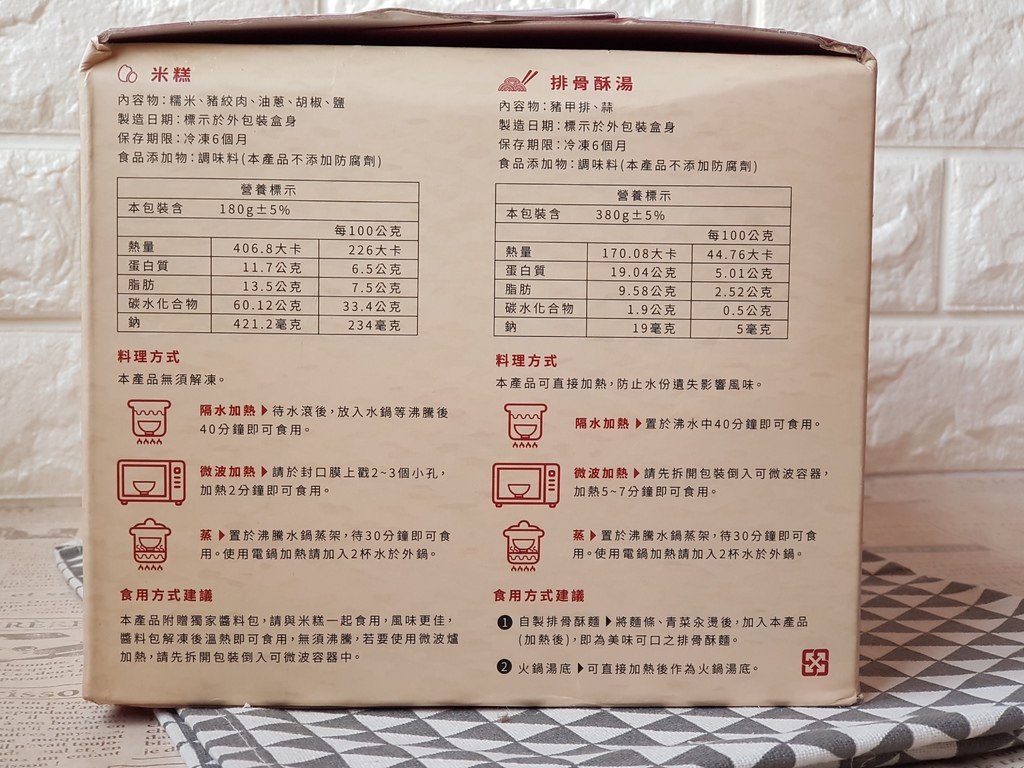 米糕
內容物:糯米、豬絞肉、油蔥、胡椒、鹽
製造日期:標示於外包裝盒身
保存期限:冷凍6個月
食品添加物:調味料(本產品不添加防腐劑)
營養標示
本包裝含 180g±5%
每100公克
熱量 406.8大卡 226大卡
蛋白質 11.7公克 6.5公克
脂肪 13.5公克 7.5公克
碳水化合物 60.12公克 33.4公克
鈉 421.2毫克 234毫克
料理方式
本產品無須解凍。
隔水加熱▶待水滾後,放入水鍋等沸騰後
40分鐘即可食用。
微波加熱▶請於封口膜上戳2~3個小孔,
加熱2分鐘即可食用。
蒸▶置於沸騰水鍋蒸架,待30分鐘即可食
用。使用電鍋加熱請加入2杯水於外鍋。
食用方式建議
本產品附贈獨家醬料包,請與米糕一起食用,風味更佳,
醬料包解凍後溫熱即可食用,無須沸騰,若要使用微波爐
加熱,請先拆開包裝倒入可微波容器中。
排骨酥湯
內容物:豬甲排、蒜
製造日期:標示於外包裝盒身
保存期限:冷凍6個月
食品添加物:調味料(本產品不添加防腐劑)
營養標示
本包裝含 380g±5%
每100公克
熱量 170.08大卡 44.76大卡
蛋白質 19.04公克 5.01公克
脂肪 9.58公克 2.52公克
碳水化合物 1.9公克 0.5公克
鈉 19毫克 5毫克
料理方式
本產品可直接加熱,防止水份遺失影響風味。
隔水加熱▶置於沸水中40分鐘即可食用。
微波加熱▶請先拆開包裝倒入可微波容器,
加熱5~7分鐘即可食用。
蒸▶置於沸騰水鍋蒸架,待30分鐘即可食
用。使用電鍋加熱請加入2杯水於外鍋。
食用方式建議
❶ 自製排骨酥麵▶將麵條、青菜汆燙後,加入本產品
(加熱後),即為美味可口之排骨酥麵。
❷ 火鍋湯底▶可直接加熱後作為火鍋湯底。